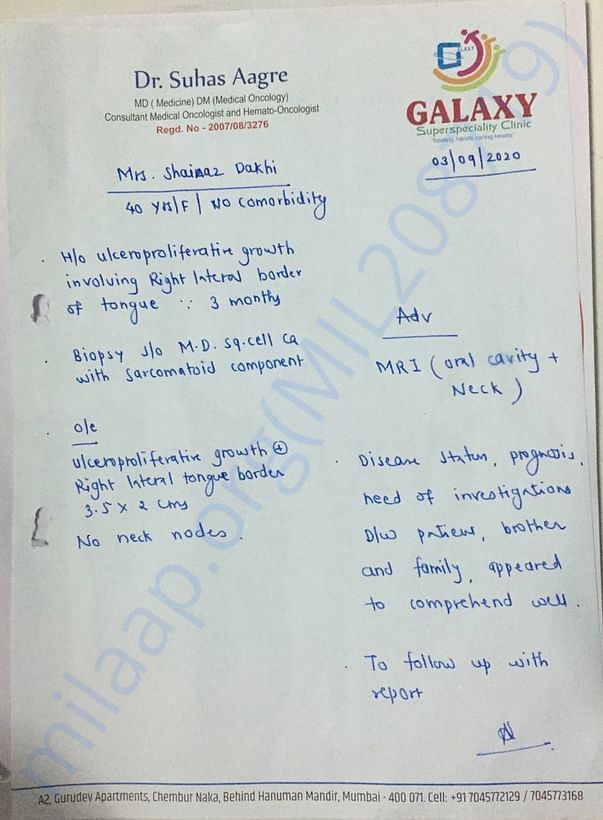 Dr. Suhas Aagre
MD ( Medicine) DM (Medical Oncology)
Consultant Medical Oncologist and Hemato-Oncologist
Regd. No - 2007/08/3276
GALAXY
GALAXY
Superspeciality Clinic
"healing hands caring hearts"
03/09/2020
Mrs. Shainaz Dakhi
40 yrs/F/ No comorbidity
. H/o ulceroproliferative growth
involving Right lateral border
of tongue ∵ 3 months
. Biopsy s/o M.D. sq.cell ca
with sarcomatoid component
. o/e
ulceroproliferative growth ⊕
Right lateral tongue border
3.5 x 2 cms
No neck nodes.
Adv
MRI ( oral cavity +
Neck )
. Disease status, prognosis,
need of investigations
D/w patient, brother
and family, appeared
to comprehend well.
. To follow up with
report
A2, Gurudev Apartments, Chembur Naka, Behind Hanuman Mandir, Mumbai - 400 071. Cell: +91 7045772129 / 7045773168
milaap.org(MIL208779)